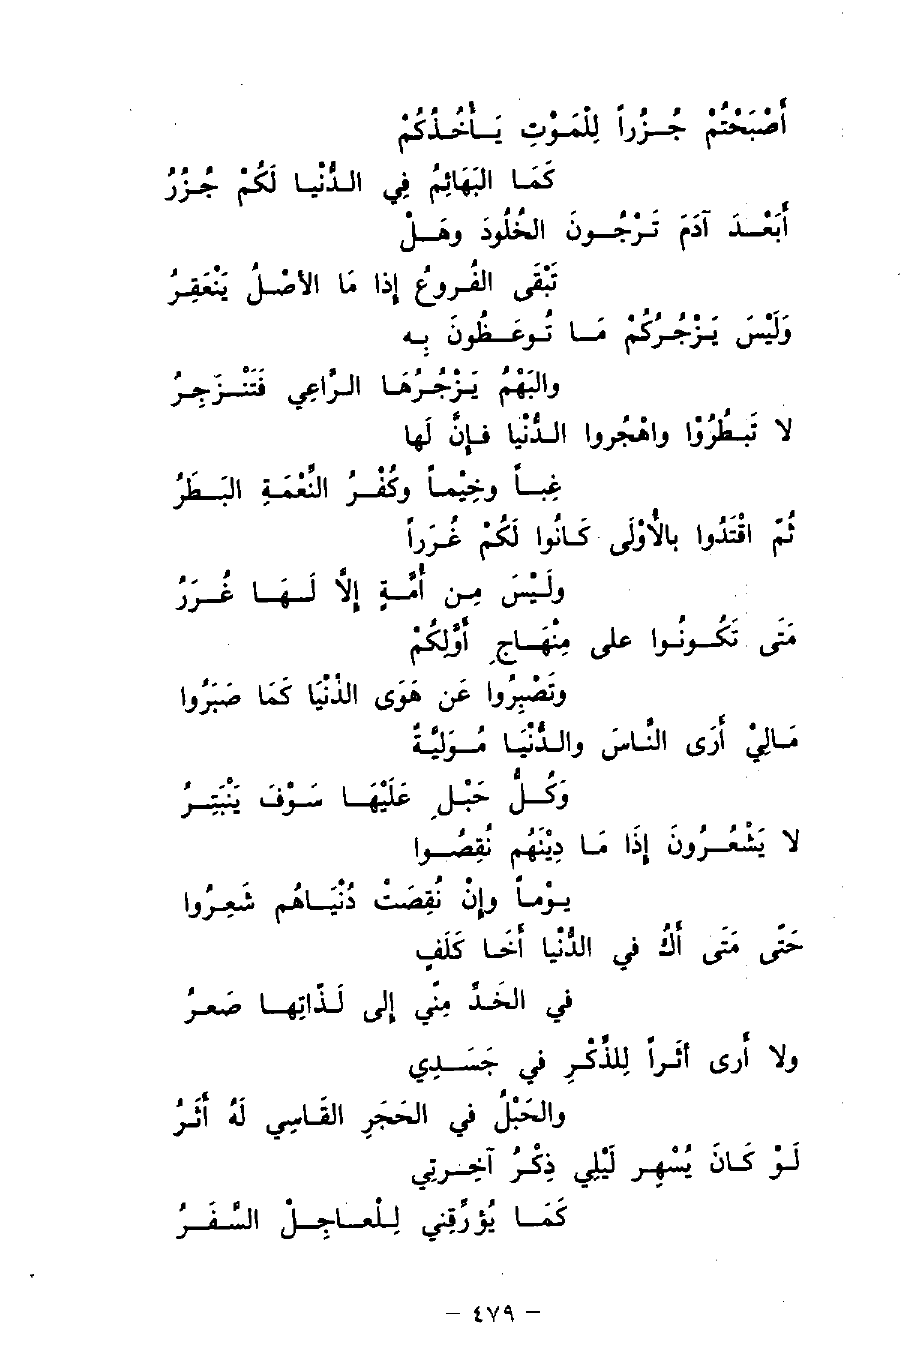 أَصْبَحْتُمْ جُزُراً لِلْمَوْتِ يَأْخُذُكُمْ
كَمَا البَهَائِمُ فِي الدُّنْيا لَكُمْ جُزُرُ
أَبَعْدَ آدَمَ تَرْجُونَ الخُلُودَ وهَلْ
تَبْقَى الفُروعُ إذا مَا الأصْلُ يَنْعَقِرُ
وَلَيْسَ يَزْجُرُكُمْ مَا تُوعَظُونَ بِه
والبَهْمُ يَزْجُرُهَا الرَّاعِي فَتَنْزَجِرُ
لا تَبطُرُوْا واهْجُروا الدُّنْيا فإنَّ لَها
غِباً وخِيْماً وكُفْرُ النِّعْمَةِ البَطَرُ
ثُمّ اقْتَدُوا بالأوْلَى كَانُوا لَكُمْ غُرَراً
ولَيْسَ مِن أُمَّةٍ إلاَّ لَهَا غُرَرُ
مَتَى تَكُونُوا على مِنْهَاجِ أَوَّلِكُمْ
وتَصْبِرُوا عَن هَوَى الدُّنْيَا كَمَا صَبَرُوا
مَالِيْ أَرَى النَّاسَ والدُّنْيَا مُوَلِيَّةٌ
وَكُلُّ حَبْلٍ عَلَيْهَا سَوْفَ يَنْبَتِرُ
لا يَشْعُرُونَ إذَا مَا دِيْنَهُم نُقِصُوا
يوْماً وإنْ نُقِصَتْ دُنْيَاهُم شَعِرُوا
حَتَّى مَتَى أَكُ في الدُّنْيا أخَا كَلَفٍ
في الخَدِّ مِنِّي إلى لَذَّاتِها صَعرُ
ولا أَرى أثَراً لِلذِّكْرِ في جَسَدِي
والحَبْلُ في الحَجَرِ القَاسِي لَهُ أَثَرُ
لَوْ كَانَ يُسْهِر لَيْلِي ذِكْرُ آخِرتِي
كَمَا يُؤرِّقِني لِلْعاجِلْ السَّفَرُ
– ٤٧٩ –